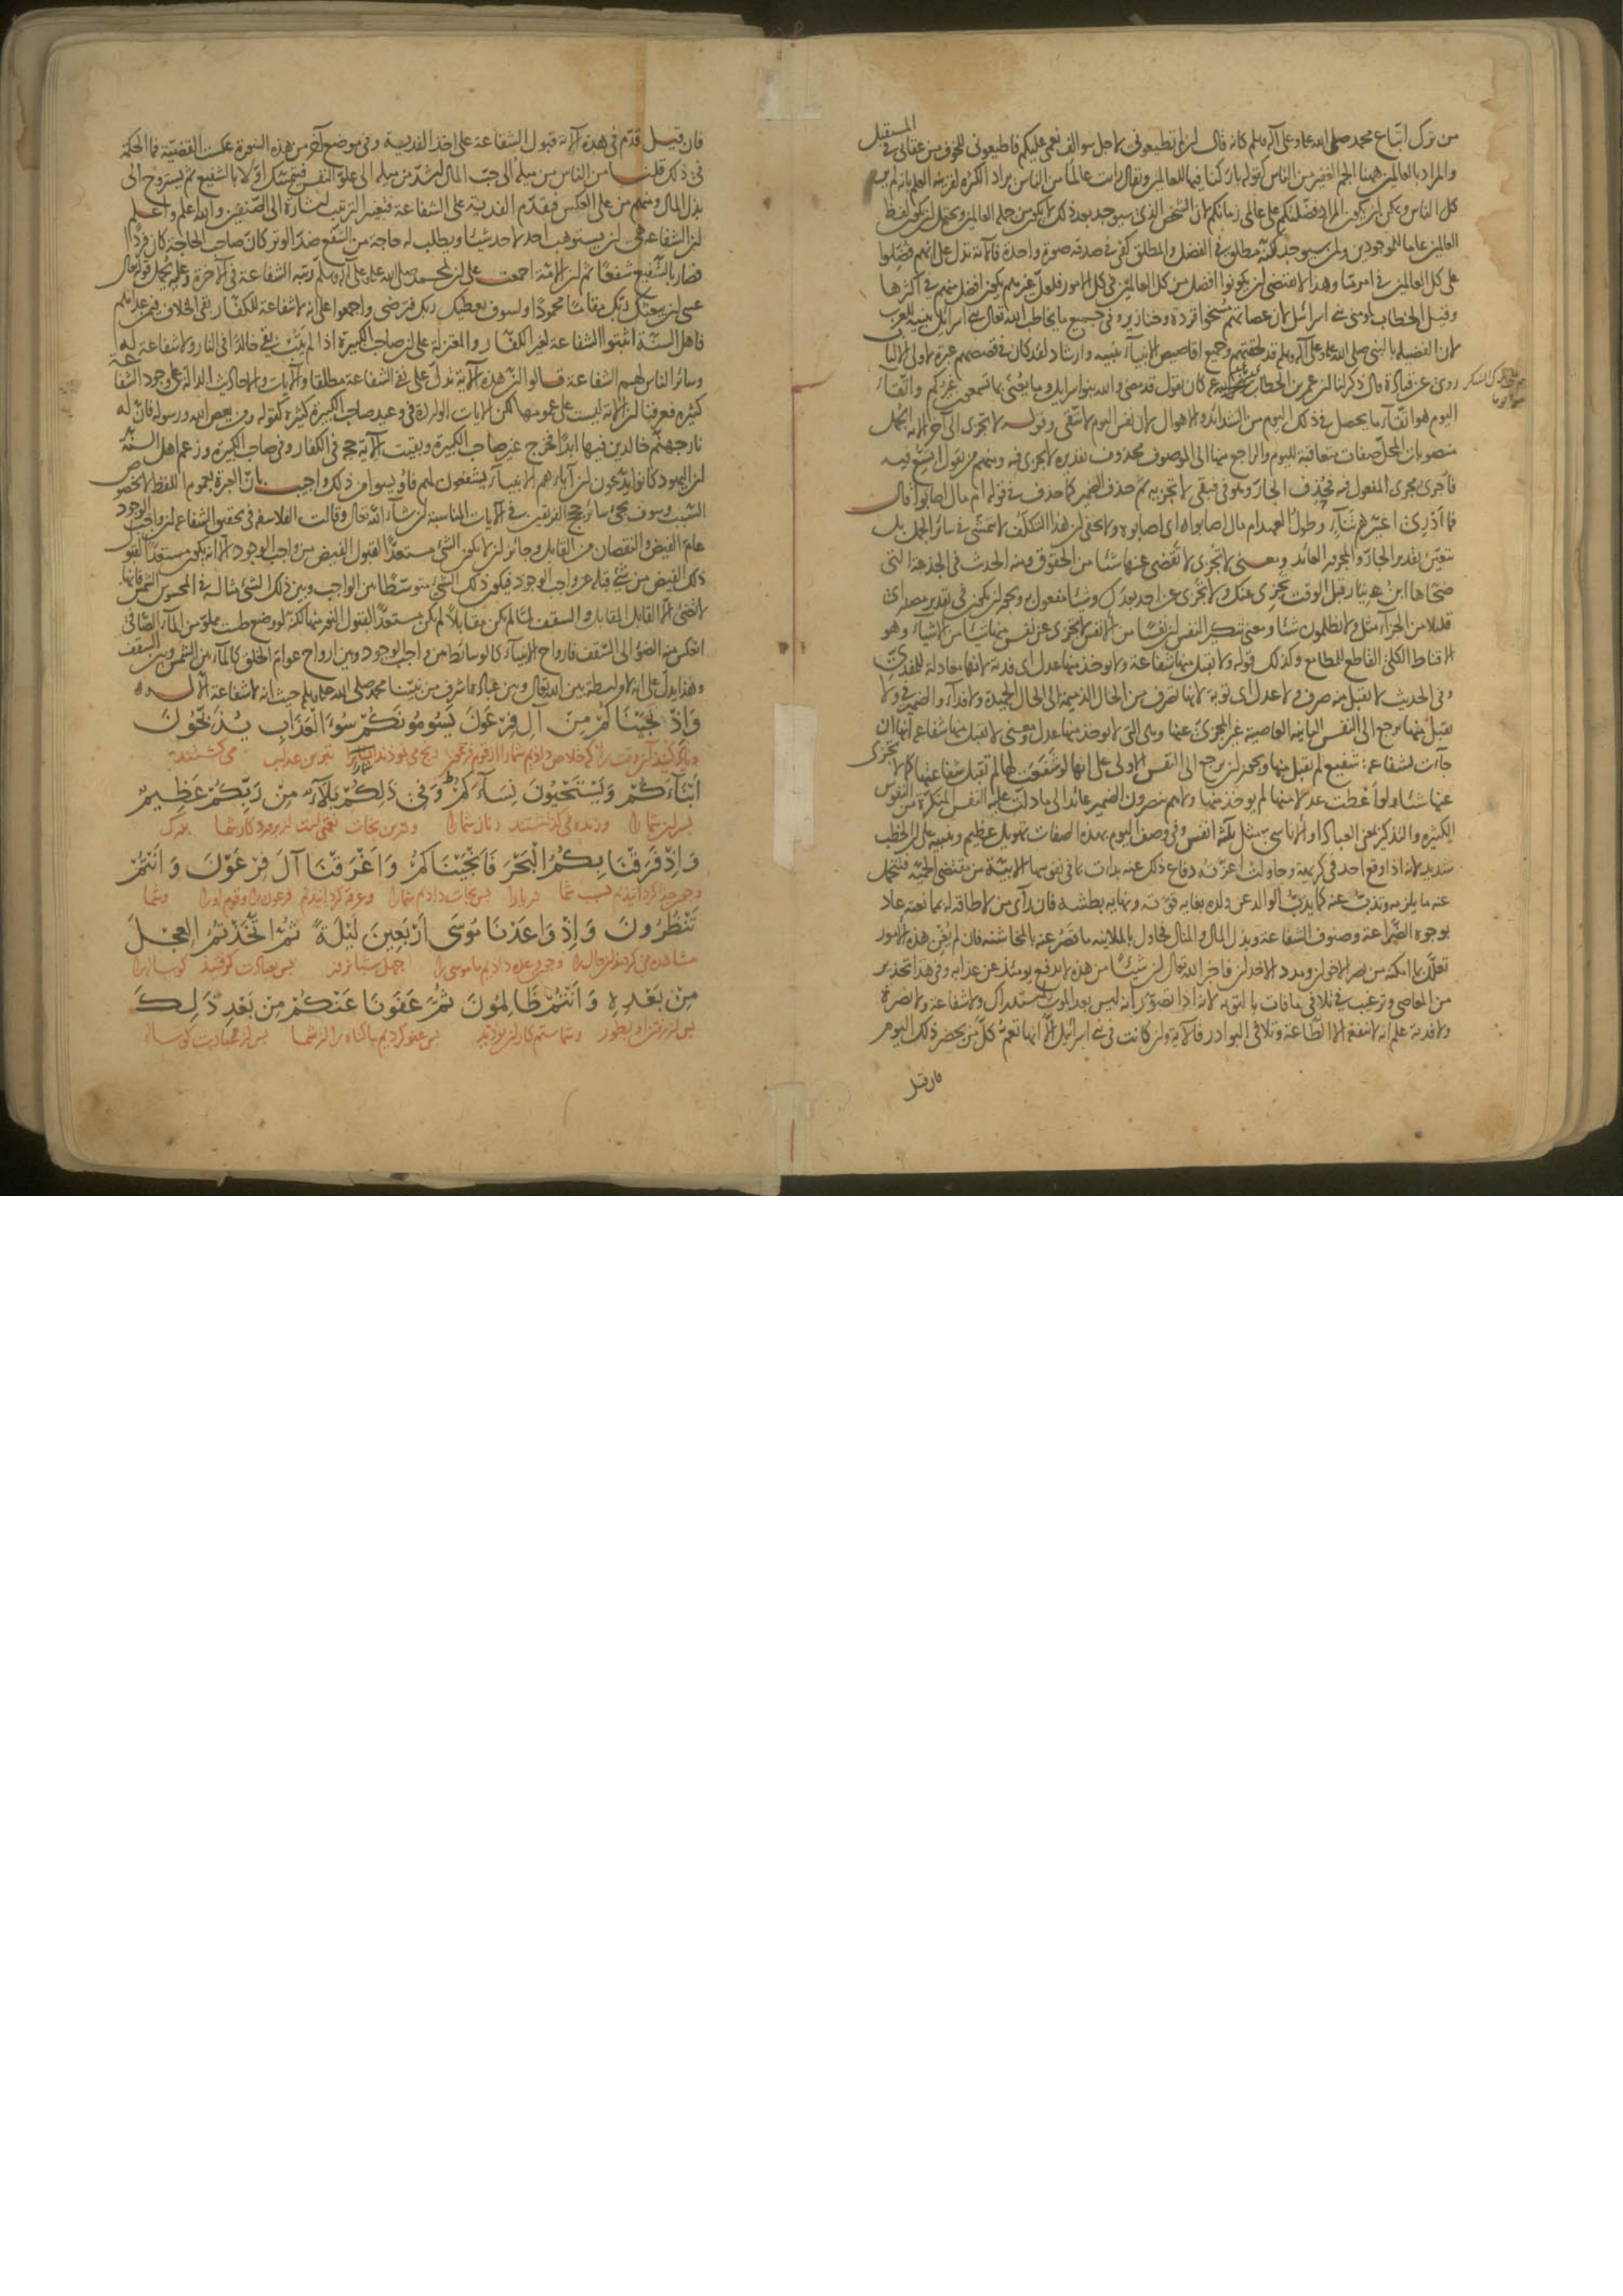 من ترك اتباع محمد صلى الله عليه وعلى آله وسلم كانه قال ان لم تطيعونى لاجل سوالف نعمى عليكم فاطيعونى للخوف من عقابى فى المستقبل
والمراد بالعالمين ههنا الجم الغفير من الناس كقوله باركنا فيها للعالمين ويقال رايت عالما من الناس يراد الكثرة لقرينة العلم بانه لم ير
كل الناس ويمكن ان يكون المراد فضلتكم على عالمى زمانكم لان الشخص الذى سيوجد بعد ذلك لا يكون من جملة العالمين ويحتمل ان يكون لفظ
العالمين عاما للموجودين ولمن سيوجد لكنه مطلق فى الفضل والمطلق يكفى فى صدقه صورة واحدة فالآية تدل على انهم فضلوا
على كل العالمين فى امر ما وهذا لا يقتضى ان يكونوا افضل من كل العالمين فى كل الامور فلعل غيرهم يكون افضل منهم فى اكثرها
وقيل الخطاب لمؤمنى بنى اسرائيل لان عصاتهم مسخوا قردة وخنازير وفى جميع ما يخاطب الله تعالى بنى اسرائيل تنبيه للعرب
لان الفضيلة بالنبى صلى الله عليه وعلى آله وسلم قد لحقتهم وجميع اقاصيص الانبياء تنبيه وارشاد لقد كان فى قصصهم عبرة لاولى الالباب
روى عن قتادة قال ذكر لنا ان عمر بن الخطاب كان يقول قد مضى والله بنو اسرائيل وما يعنى بما تسمعون غيركم واتقاء
اليوم هو اتقاء ما يحصل فى ذلك اليوم من الشدائد والاهوال لان نفس اليوم لا تتقى وقوله لا تجزى الى آخر الآية الجمل
منصوبات المحل صفات متعاقبة لليوم والراجع منها الى الموصوف محذوف تقديره لا تجزى فيه ومنهم من يقول اتسع فيه
فاجرى مجرى المفعول فيه فحذف الجار وهو فى فبقى لا تجزيه ثم حذف الضمير كما حذف فى قوله ام مال اصابوا قال
فما ادرى اغيرهم تناء وطول العهد ام مال اصابوا اى اصابوه ولا يخفى ان هذا التكلف لا يتمشى فى سائر الجمل بل
يتعين تقدير الجار والمجرور العائد ومعنى لا تجزى لا تقضى عنها شيئا من الحقوق ومنه الحديث فى الجذعة التى
ضحاها ابن نيار قبل الوقت تجزى عنك ولا تجزى عن احد بعدك وشيئا مفعول به ويجوز ان يكون فى تقدير مصدر اى
قليلا من الجزاء مثل ولا تظلمون شيئا ومعنى تنكير النفس ان نفسا من الانفس لا تجزى عن نفس منها شيئا من الاشياء وهو
الاقناط الكلى القاطع للمطامع وكذلك قوله ولا يقبل منها شفاعة ولا يوخذ منها عدل اى فدية لانها معادلة للمفدى
وفى الحديث لا يقبل منه صرف ولا عدل اى توبة لانها تصرف من الحال الذميمة الى الحال الحميدة ولا فداء والضمير فى ولا
يقبل منها يرجع الى النفس الثانية العاصية غير المجزى عنها وهى التى لا يوخذ منها عدل ومعنى لا يقبل منها شفاعة انها ان
جآءت بشفاعة شفيع لم يقبل منها ويجوز ان يرجع الى النفس الاولى على انها لو شفعت لها لم تقبل شفاعتها كما لا تجزى
عنها شيئا ولو اعطت عدلا منها لم يوخذ منها ولا هم ينصرون الضمير عائد الى ما دلت عليه النفس المنكرة من النفوس
الكثيرة والتذكير بمعنى العباد او الاناسى مثل ثلثة انفس وفى وصف اليوم بهذه الصفات تهويل عظيم وتنبيه على ان الخطب
شديد لانه اذا وقع احد فى كريهة وحاولت اعزته دفاع ذلك عنه بدأت بما فى نفوسها الابية من مقتضى الحمية فتحمل
عنه ما يلزمه وتذب عنه كما يذب الوالد عن ولده بغاية قوته ونهاية بطشه فان رأى من لا طاقة له بممانعته عاد
بوجوه الضراعة وصنوف الشفاعة وبذل المال والمنال فحاول بالملاينة ما قصر عنه بالمخاشنة فان لم يغن هذه الامور
تعلل بما امكنه من نصر الاخوان ومدد الاخدان فاخبر الله تعالى ان شيئا من هذه لا يدفع يومئذ عن عذابه وفى هذا تحذير
من المعاصى وترغيب فى تلافى ما فات بالتوبة لانه اذا تصور انه ليس بعد الموت استدراك ولا شفاعة ولا نصرة
ولا فدية علم انه لا ينفعه الا الطاعة وتلافى البوادر فالآية وان كانت فى بنى اسرائيل الا انها تعم كل من يحضر ذلك اليوم
فان قيل
فان قيل قدم فى هذه الآية قبول الشفاعة على اخذ الفدية وفى موضع آخر من هذه السورة عكس القضية فما الحكمة
فى ذلك قلنا من الناس من ميله الى حب المال اشد من ميله الى علو النفس فيتمسك اولا بالشفيع ثم يستروح الى
بذل المال ومنهم من على العكس فيقدم الفدية على الشفاعة فتغيير الترتيب اشارة الى الصنفين والله اعلم واعلم
ان الشفاعة هى ان يستوهب احد لاحد شيئا ويطلب له حاجة من الشفع ضد الوتر كان صاحب الحاجة كان فردا
فصار بالشفيع شفعا ثم ان الامة اجمعت على ان لمحمد صلى الله عليه وعلى آله وسلم رتبة الشفاعة فى الآخرة وعليه يحمل قوله تعالى
عسى ان يبعثك ربك مقاما محمودا ولسوف يعطيك ربك فترضى واجمعوا على انه لا شفاعة للكفار بقى الخلاف فيمن عداهم
فاهل السنة اثبتوا الشفاعة لغير الكفار والمعتزلة على ان صاحب الكبيرة اذا لم يتب بقى خالدا فى النار ولا شفاعة له
وسائر الناس لهم الشفاعة قالوا ان هذه الآية تدل على نفى الشفاعة مطلقا والآيات والاحاديث الدالة على وجود الشفاعة
كثيرة فعرفنا ان الآية ليست على عمومها لكن الآيات الواردة فى وعيد صاحب الكبيرة كثيرة كقوله ومن يعص الله ورسوله فان له
نار جهنم خالدين فيها ابدا فخرج غير صاحب الكبيرة وبقيت الآية حجة فى الكفار وفى صاحب الكبيرة وزعم اهل السنة
ان اليهود كانوا يدعون ان آباءهم الانبياء يشفعون لهم فاويسوا من ذلك واجيب بان العبرة بعموم اللفظ لا بخصوص
السبب وسوف يجئ سائر حجج الفريقين فى الآيات المناسبة ان شاء الله تعالى وقالت الفلاسفة فى تحقيق الشفاعة ان واجب الوجود
عام الفيض والنقصان من القابل وجائز ان لا يكون الشئ مستعدا لقبول الفيض من واجب الوجود الا انه يكون مستعدا لقبول
ذلك الفيض من شئ قبله عن واجب الوجود فيكون ذلك الشئ متوسطا بين الواجب وبين ذلك الشئ مثاله فى المحسوس الشمس فانها
لا تضئ الا القابل المقابل والسقف لما لم يكن مقابلا لم يكن مستعدا لقبول النور منها لكنه لو وضع طست مملو من الماء الصافى
انعكس منه الضوء الى السقف فارواح الانبياء كالوسائط بين واجب الوجود وبين ارواح عوام الخلق كالماء بين الشمس وبين السقف
وهذا يدل على انه لا واسطة بين الله تعالى وبين عباده اشرف من نبينا محمد صلى الله عليه وسلم حيث انه لا شفاعة الا له
وَاِذْ نَجَّيْنَاكُمْ مِنْ آلِ فِرْعَوْنَ يَسُومُونَكُمْ سُوءَ الْعَذَابِ يُذَبِّحُونَ
وياد كنيد آن وقت را كه خلاص داديم شما را از قوم فرعون رنج مى نمودند شما را بترين عذاب مى كشتند
اَبْنَآءَكُمْ وَيَسْتَحْيُونَ نِسَآءَكُمْ وَفِى ذَلِكُمْ بَلَآءٌ مِنْ رَبِّكُمْ عَظِيمٌ
پسران شما را وزنده مى گذاشتند زنان شما را ودرين نجات نعمتى است از پروردگار شما بزرگ
وَاِذْ فَرَقْنَا بِكُمُ الْبَحْرَ فَاَنْجَيْنَاكُمْ وَاَغْرَقْنَا آلَ فِرْعَوْنَ وَاَنْتُمْ
وچون جدا گردانيديم بسبب شما دريا را پس نجات داديم شما را وغرقه گردانيديم فرعون را وقوم او را وشما
تَنْظُرُونَ وَاِذْ وَاعَدْنَا مُوسَى اَرْبَعِينَ لَيْلَةً ثُمَّ اتَّخَذْتُمُ الْعِجْلَ
مشاهده مى كرديد آن حال را وچون وعده داديم ما موسى را چهل شبانروز پس بعبادت گرفتيد گوساله را
مِنْ بَعْدِهِ وَاَنْتُمْ ظَالِمُونَ ثُمَّ عَفَوْنَا عَنْكُمْ مِنْ بَعْدِ ذَلِكَ
پس از رفتن او بطور وشما ستم كاران بوديد پس عفو كرديم ما گناه را از شما پس از عبادت گوساله